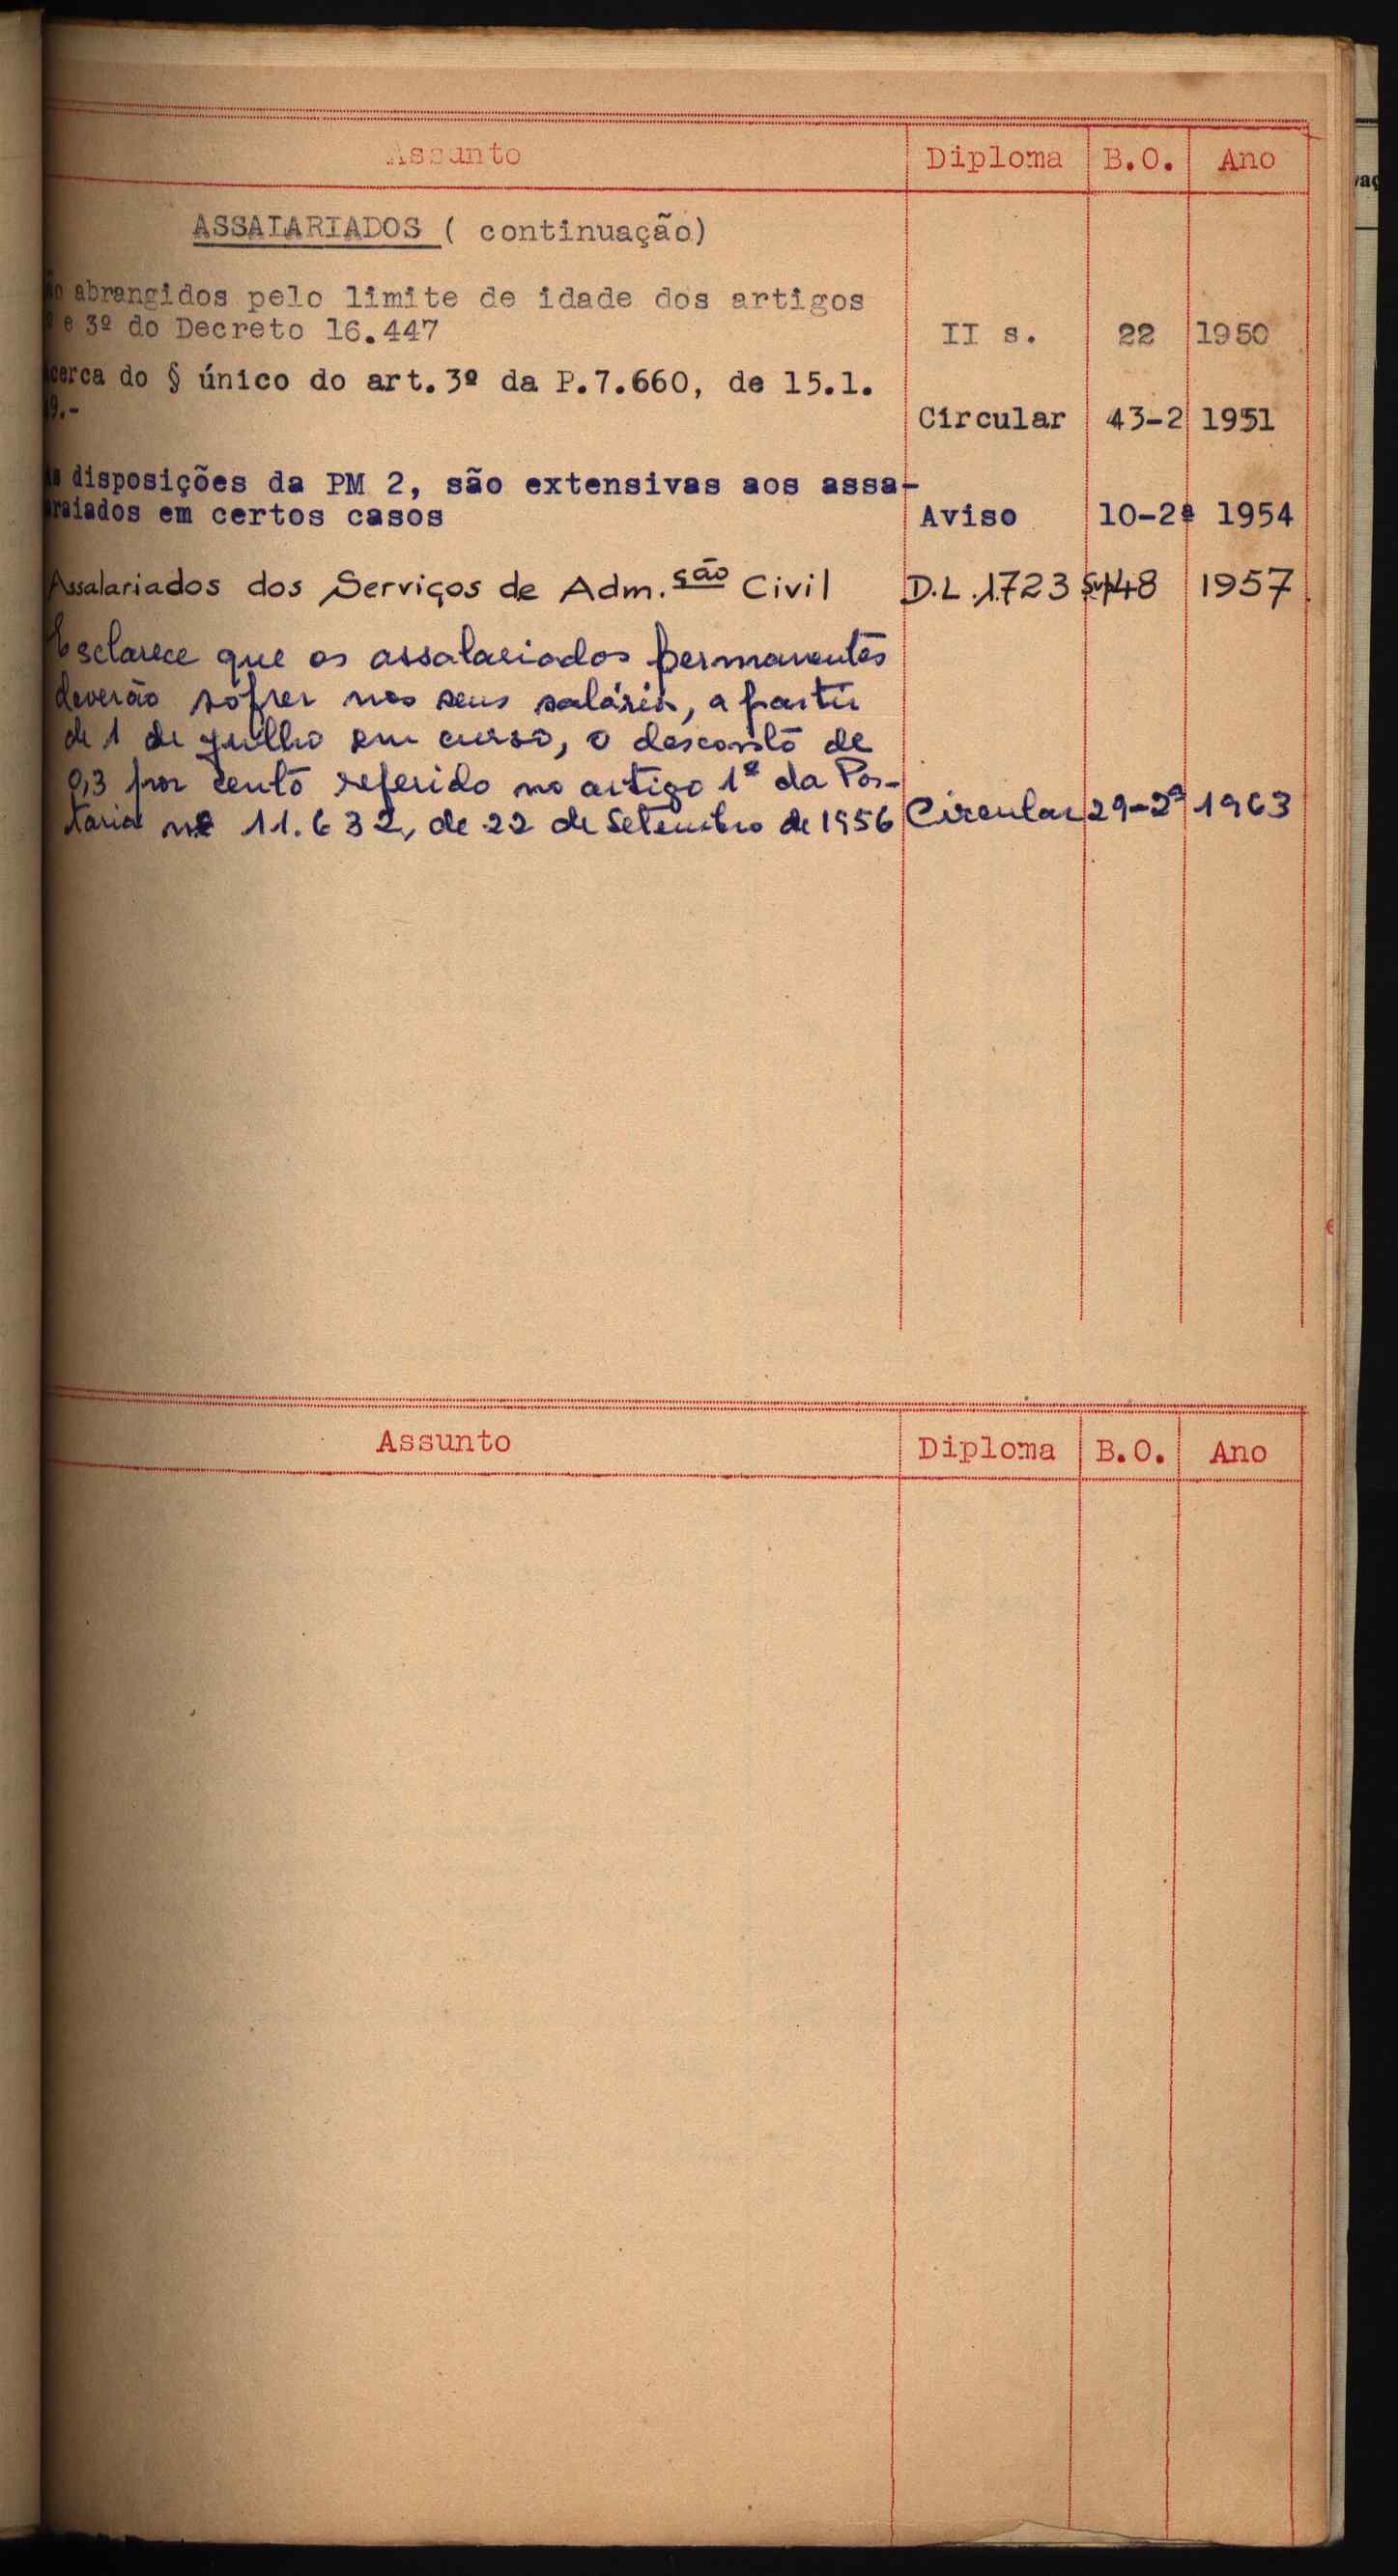 Assunto Diploma B.O. Ano
ASSALARIADOS ( continuação)
abrangidos pelo limite de idade dos artigos
e 3º do Decreto 16.447 II s. 22 1950
cerca do § único do art.3º da P.7.660, de 15.1.
9.- Circular 43-2 1951
disposições da PM 2, são extensivas aos assa-
raiados em certos casos Aviso 10-2ª 1954
Assalariados dos Serviços de Adm.ção Civil D.L. 1.723 Sup48 1957
Esclarece que os assalariados permanentes
deverão sofrer nos seus salários, a partir
de 1 de Julho em curso, o desconto de
0,3 por cento referido no artigo 1º da Por-
taria nº 11.632, de 22 de Setembro de 1956 Circular 29-2ª 1963
Assunto Diploma B.O. Ano